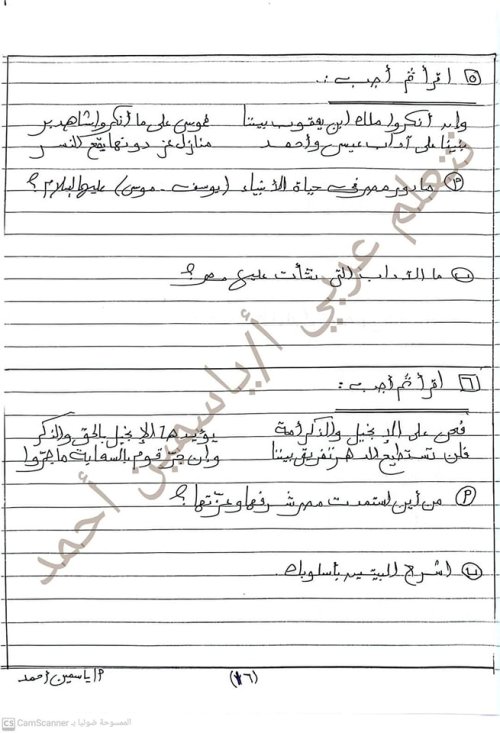 ٥ اقرأ ثم أجب :.
وإن أنكروا ملك ابن يعقوب بيننا فموسى على ما أنكروا شاهد بر
بنينا على آداب عيسى وأحمد منازل عز دونها يقع النسر
أ ما دور مصر فى حياة الأنبياء (يوسف - موسى) عليهما السلام ؟
ب ما الآداب التى نشأت عليها مصر ؟
٦ اقرأ ثم أجب :
فنحن على الإنجيل والذكر أمة يؤيدها الإنجيل بالحق والذكر
فلن تستطيع الدهر تفريق بيننا وإن جر قوم بالسعاية ما جروا
أ من أين استمدت مصر شرفها وعزتها ؟
ب اشرح البيتين بأسلوبك.
نتعلم عربي أ/ياسمين أحمد
أ/ ياسمين أحمد
(١٦)
CS CamScanner الممسوحة ضوئيا بـ